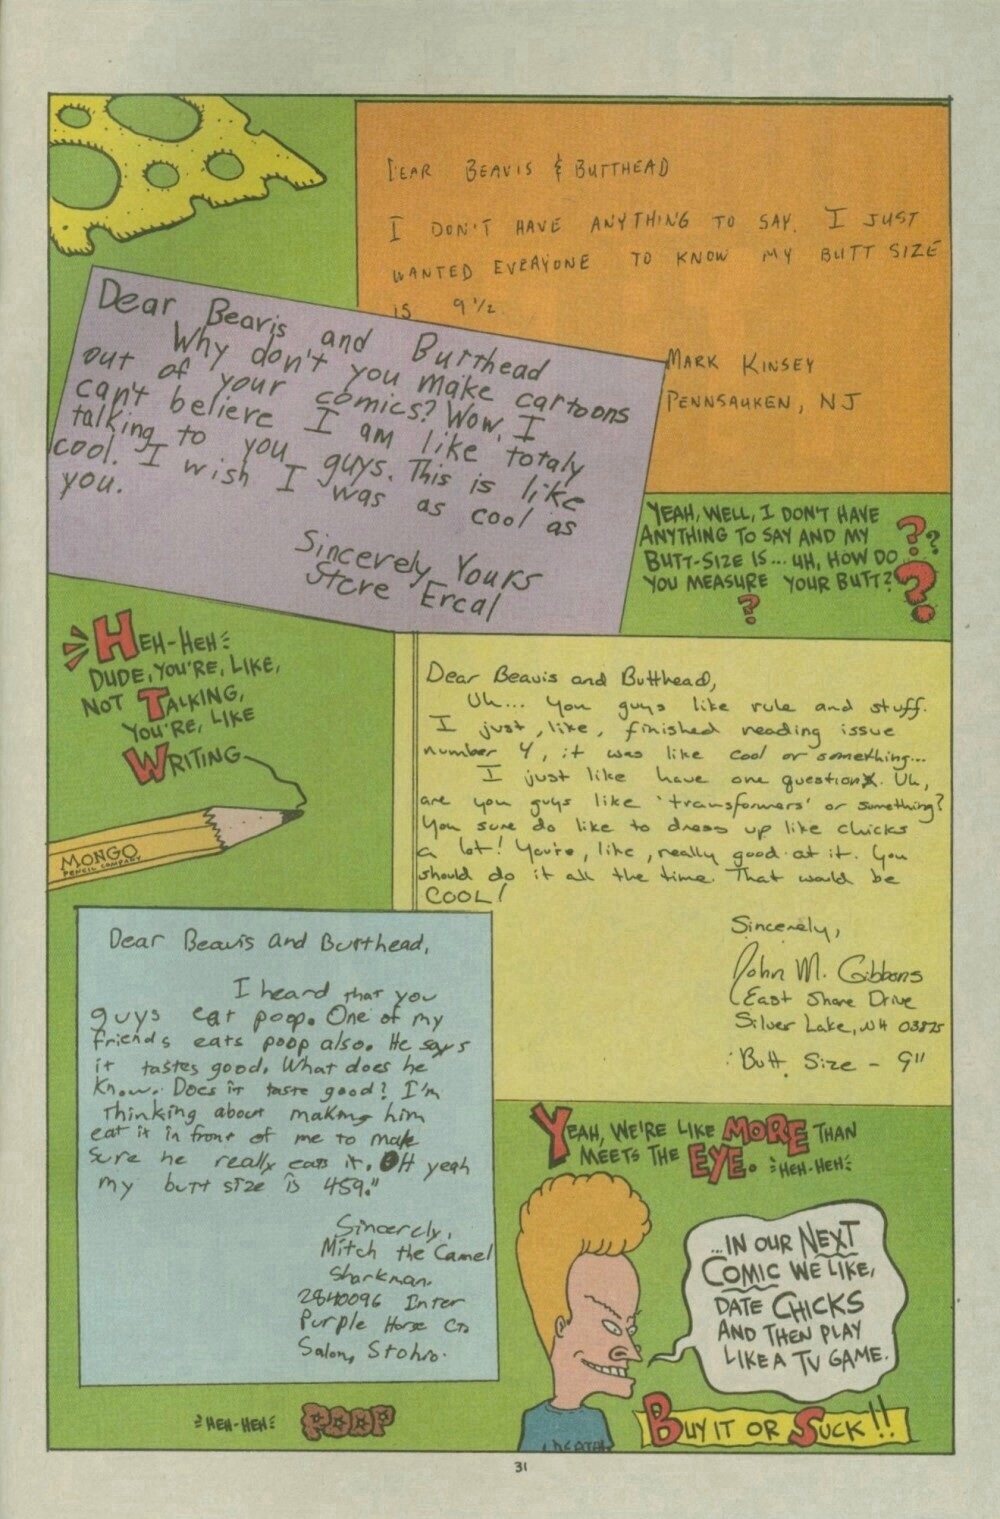 DEAR BEAVIS & BUTTHEAD
I DON'T HAVE ANYTHING TO SAY. I JUST
WANTED EVERYONE TO KNOW MY BUTT SIZE
IS 9 1/2
MARK KINSEY
PENNSAUKEN, NJ
Dear Beavis and Butthead
Why don't you make cartoons
out of your comics? Wow, I
can't believe I am like totaly
talking to you guys. This is like
cool. I wish I was as cool as
you.
Sincerely Yours
Steve Ercal
YEAH, WELL, I DON'T HAVE
ANYTHING TO SAY AND MY
BUTT-SIZE IS... UH, HOW DO
YOU MEASURE YOUR BUTT?
? ? ? ?
HEH-HEH
DUDE, YOU'RE, LIKE,
NOT TALKING,
YOU'RE, LIKE
WRITING
MONGO
PENCIL COMPANY
Dear Beavis and Butthead,
Uh... You guys like rule and stuff.
I just, like, finished reading issue
number 4, it was like cool or something...
I just like have one question. Uh,
are you guys like 'transformers' or something?
You sure do like to dress up like chicks
a lot! You're, like, really good at it. You
should do it all the time. That would be
COOL!
Sincerely,
John M. Gibbons
East Shore Drive
Silver Lake, NH 03875
Butt Size - 9"
Dear Beavis and Butthead,
I heard that you
guys eat poop. One of my
friends eats poop also. He says
it tastes good. What does he
know. Does it taste good? I'm
thinking about making him
eat it in front of me to make
sure he really eats it. OH yeah
my butt size is 459."
Sincerely,
Mitch the Camel
Sharkman.
2840096 Inter
Purple Horse Ct.
Salon, Stohro.
YEAH, WE'RE LIKE MORE THAN
MEETS THE EYE. HEH-HEH
...IN OUR NEXT
COMIC WE LIKE,
DATE CHICKS
AND THEN PLAY
LIKE A TV GAME.
HEH-HEH POOP
DEATH
BUY IT OR SUCK!!
31